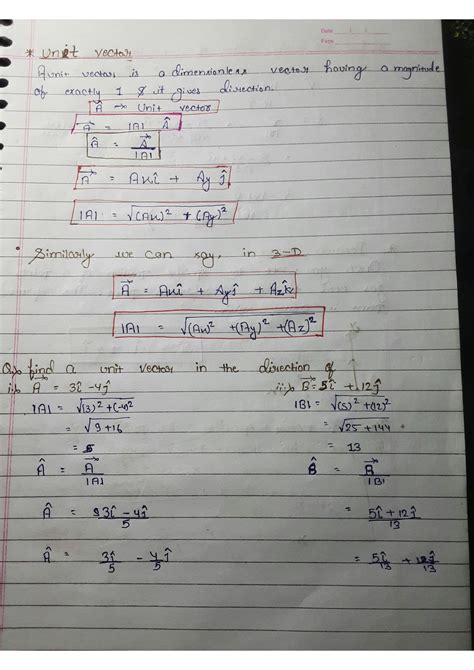 Date
Page
* Unit vector
A unit vector is a dimensionless vector having a magnitude
of exactly 1 & it gives direction.
Â → Unit vector
A⃗ = |A| Â
Â = A⃗/|A|
A⃗ = Axî + Ay ĵ
|A| = √(Ax)² + (Ay)²
• Similarly we can say, in 3-D
A⃗ = Axî + Ayĵ + Azk̂
|A| = √(Ax)² + (Ay)² + (Az)²
Q. find a unit vector in the direction of
i) A⃗ = 3î - 4ĵ
|A| = √(3)² + (-4)²
= √9 + 16
= 5
Â = A⃗/|A|
Â = 3î - 4ĵ/5
Â = 3î/5 - 4ĵ/5
ii) B⃗ = 5î + 12ĵ
|B| = √(5)² + (12)²
= √25 + 144
= 13
B̂ = B⃗/|B|
= 5î + 12ĵ/13
= 5î/13 + 12ĵ/13